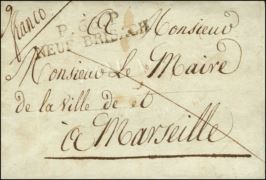 franco
A Monsieur
P. P.
NEUF-BRISACH
Monsieur Le Maire
de la Ville de et
à Marseille